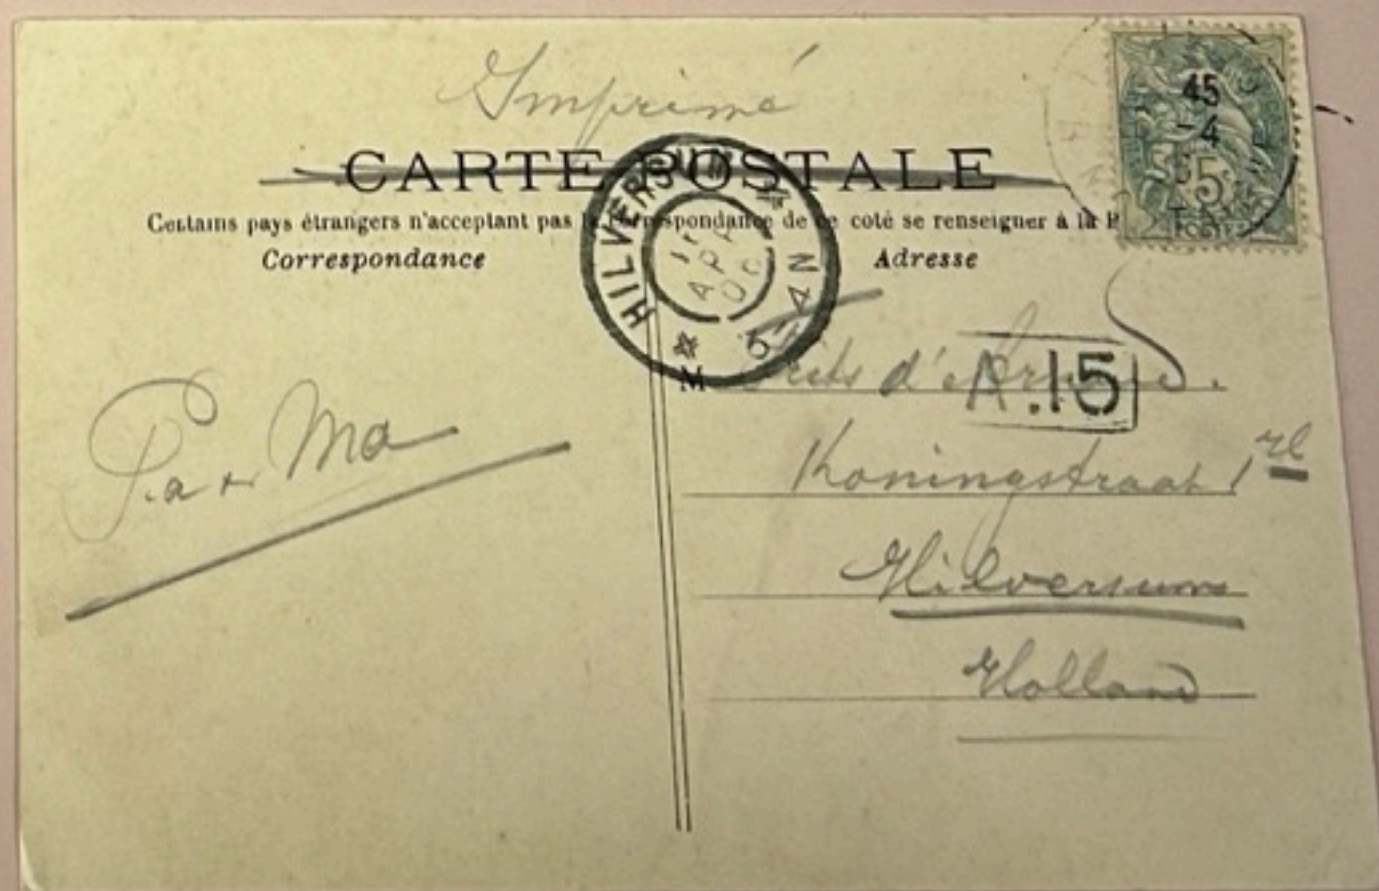 Imprimé
CARTE POSTALE
Certains pays étrangers n'acceptant pas la correspondance de ce coté se renseigner à la
Correspondance
Adresse
HILVERSUM
APR
5-4 N
45
-4
5
POSTES
M
d'
A.15
Pa en Ma
Koningstraat 1
Hilversum
Holland